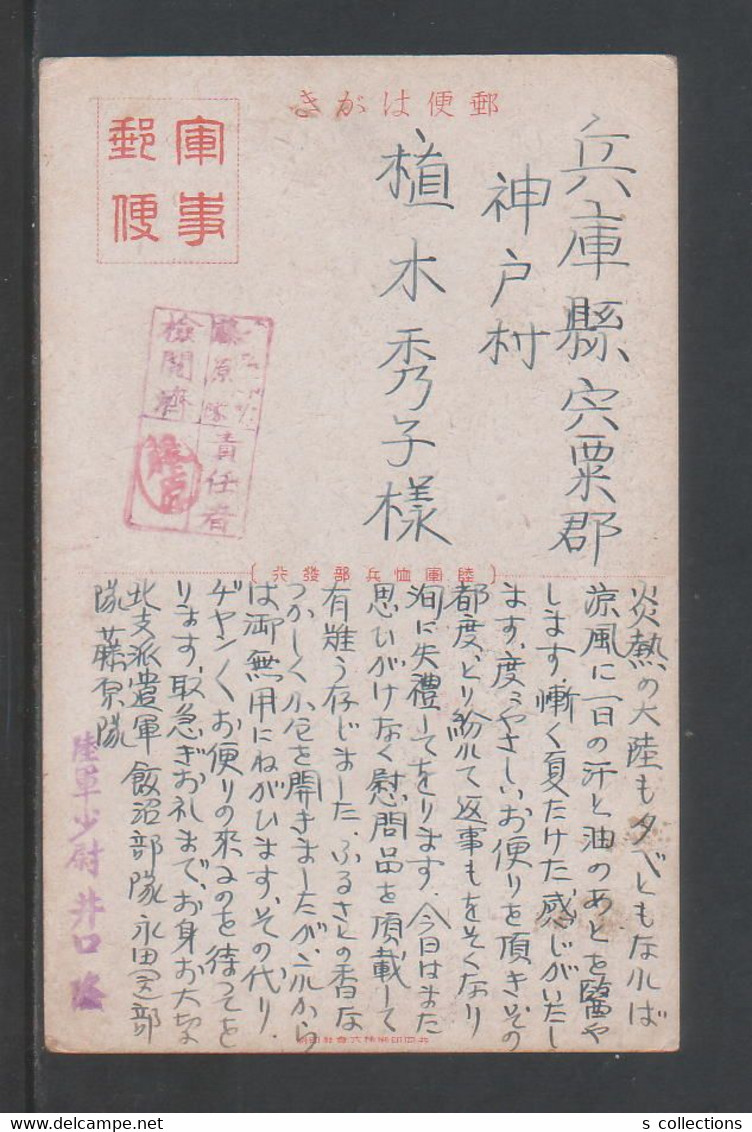 郵便はがき
軍事
郵便
兵庫縣宍粟郡
神戸村
植木秀子様
藤原隊
検閲濟
責任者
陸軍恤兵部發行
炎熱の大陸も夕べともなれば
涼風に一日の汗と油のあとを醫や
します、慚く夏たけた感じがいたし
ます、度々やさしいお便りを頂きその
都度、とり紛れて返事もをそくなり
洵に失禮してをります、今日はまた
思ひがけなく慰問品を頂載して
有難う存じました、ふるさとの香な
つかしく小包を開きましたが、これから
は御無用にねがひます、その代り、
ヂャン〱お便りの来るのを待ってを
ります、取急ぎお礼まで、お身お大切
北支派遣軍 飯沼部隊 永田(定)部
隊 藤原隊
陸軍少尉 井口 隆
s collections